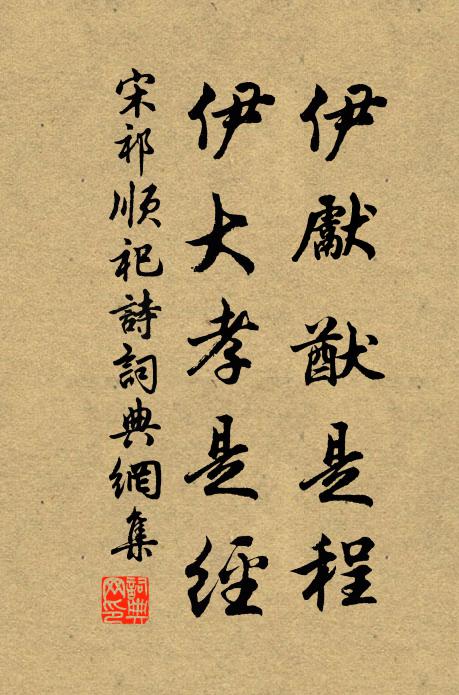 伊獻猷是程
伊大孝是經
宋祁順祀詩詞典網集
詞典網印